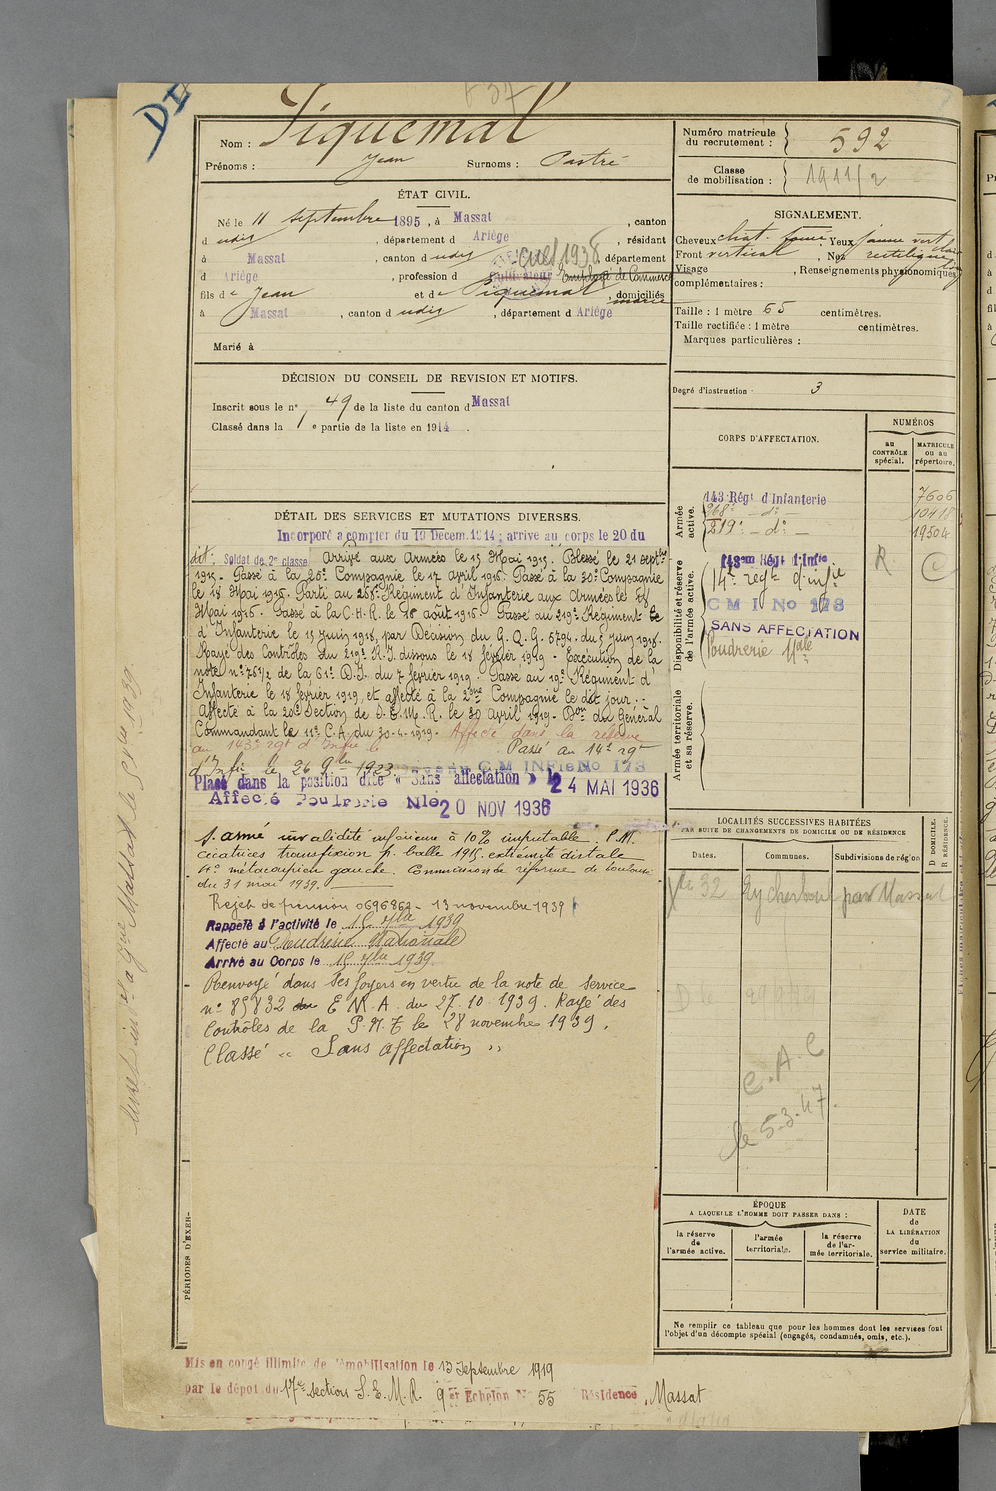 DI
Nom : Piquemal
Prénoms : Jean Surnoms : Pastré
Numéro matricule du recrutement : 592
Classe de mobilisation : 1911/2
ÉTAT CIVIL.
Né le 11 septembre 1895, à Massat, canton
d udit, département d Ariège, résidant
à Massat, canton d udit, département
d Ariège, profession d cultivateur Employé de Commerce
cult 1938
fils de Jean et de Piquemal marie, domiciliés
à Massat, canton d udit, département d Ariège
Marié à
SIGNALEMENT.
Cheveux chat. foncé Yeux jaune vert clair
Front vertical, Nez rectiligne long
Visage, Renseignements physionomiques
complémentaires :
Taille : 1 mètre 65 centimètres.
Taille rectifiée : 1 mètre centimètres.
Marques particulières :
Degré d'instruction : 3
DÉCISION DU CONSEIL DE REVISION ET MOTIFS.
Inscrit sous le n° 49 de la liste du canton d Massat
Classé dans la 1 e partie de la liste en 1914.
CORPS D'AFFECTATION.
NUMÉROS
au CONTRÔLE spécial.
MATRICULE ou au répertoire.
Armée active.
143 Régt d'Infanterie 7606
268e - do - 10418
219e - do - 19504
Disponibilité et réserve de l'armée active.
143eme Régt d'Infie R C
14e regt d'infie
C M I No 178
SANS AFFECTATION
Poudrerie Nale
Armée territoriale et sa réserve.
DÉTAIL DES SERVICES ET MUTATIONS DIVERSES.
Incorporé a compter du 19 Décem. 1914 ; arrivé au corps le 20 du
dit. Soldat de 2e classe. Arrivé aux Armées le 15 Mai 1915. Blessé le 21 septbre
1915. Passé à la 26e Compagnie le 17 avril 1916. Passé à la 30e Compagnie
le 18 Mai 1916. Parti au 268e Régiment d'Infanterie aux Armées le
Mai 1916. Passé à la C.H.R. le 18 août 1916. Passé au 219e Régiment
d'Infanterie le 15 Juin 1918, par Décision du G.Q.G. 6794 du 5 Juin 1918.
Rayé des Contrôles du 219e R.I. dissous le 18 février 1919 - Exécution de la
note n° 761/2 de la 61e D.I. du 7 février 1919. Passé au 19e Régiment d'
Infanterie le 18 février 1919, et affecté à la 2eme Compagnie le dit jour.
Affecté à la 20e Section de S.E.M.R. le 30 Avril 1919. Don du Général
Commandant le 11e C.A. du 30-4-1919. Affecté dans la réserve
au 143e rgt d'Infie le Passé au 14e rgt
d'Infie le 26 9bre 1923 C M INFie No 178
Placé dans la position dite « Sans affectation » le 24 MAI 1936
Affecté Poudrerie Nle 20 NOV 1936
S. armé invalidité inférieure à 10% imputable. P.M.
cicatrices transfixion p. balle 1915. extrémité distale
4e métacarpien gauche. Commission de réforme de Toulouse
du 31 mai 1939.
Rejet de pension 0696862 - 13 novembre 1939
Rappelé à l'activité le 15 7bre 1939
Affecté au Poudrerie Nationale
Arrivé au Corps le 15 7bre 1939.
Renvoyé dans ses foyers en vertu de la note de service
n° 85832 du E.M.A. du 27.10.1939. Rayé des
Contrôles de la P.N.T. le 28 novembre 1939.
Classé « Sans affectation »
LOCALITÉS SUCCESSIVES HABITÉES
PAR SUITE DE CHANGEMENTS DE DOMICILE OU DE RÉSIDENCE
D DOMICILE. R RÉSIDENCE.
Dates. Communes. Subdivisions de région
32 par Massat
C.A.C
le 5-3-47.
ÉPOQUE
A LAQUELLE L'HOMME DOIT PASSER DANS :
DATE de LA LIBÉRATION du service militaire.
la réserve de l'armée active.
l'armée territoriale.
la réserve de l'armée territoriale.
Ne remplir ce tableau que pour les hommes dont les services font
l'objet d'un décompte spécial (engagés, condamnés, omis, etc.).
PÉRIODES D'EXER-
Mis en congé illimité de démobilisation le 13 Septembre 1919
par le dépôt du 17e section S.E.M.R. 9 et Echelon N° 55 Résidence, Massat